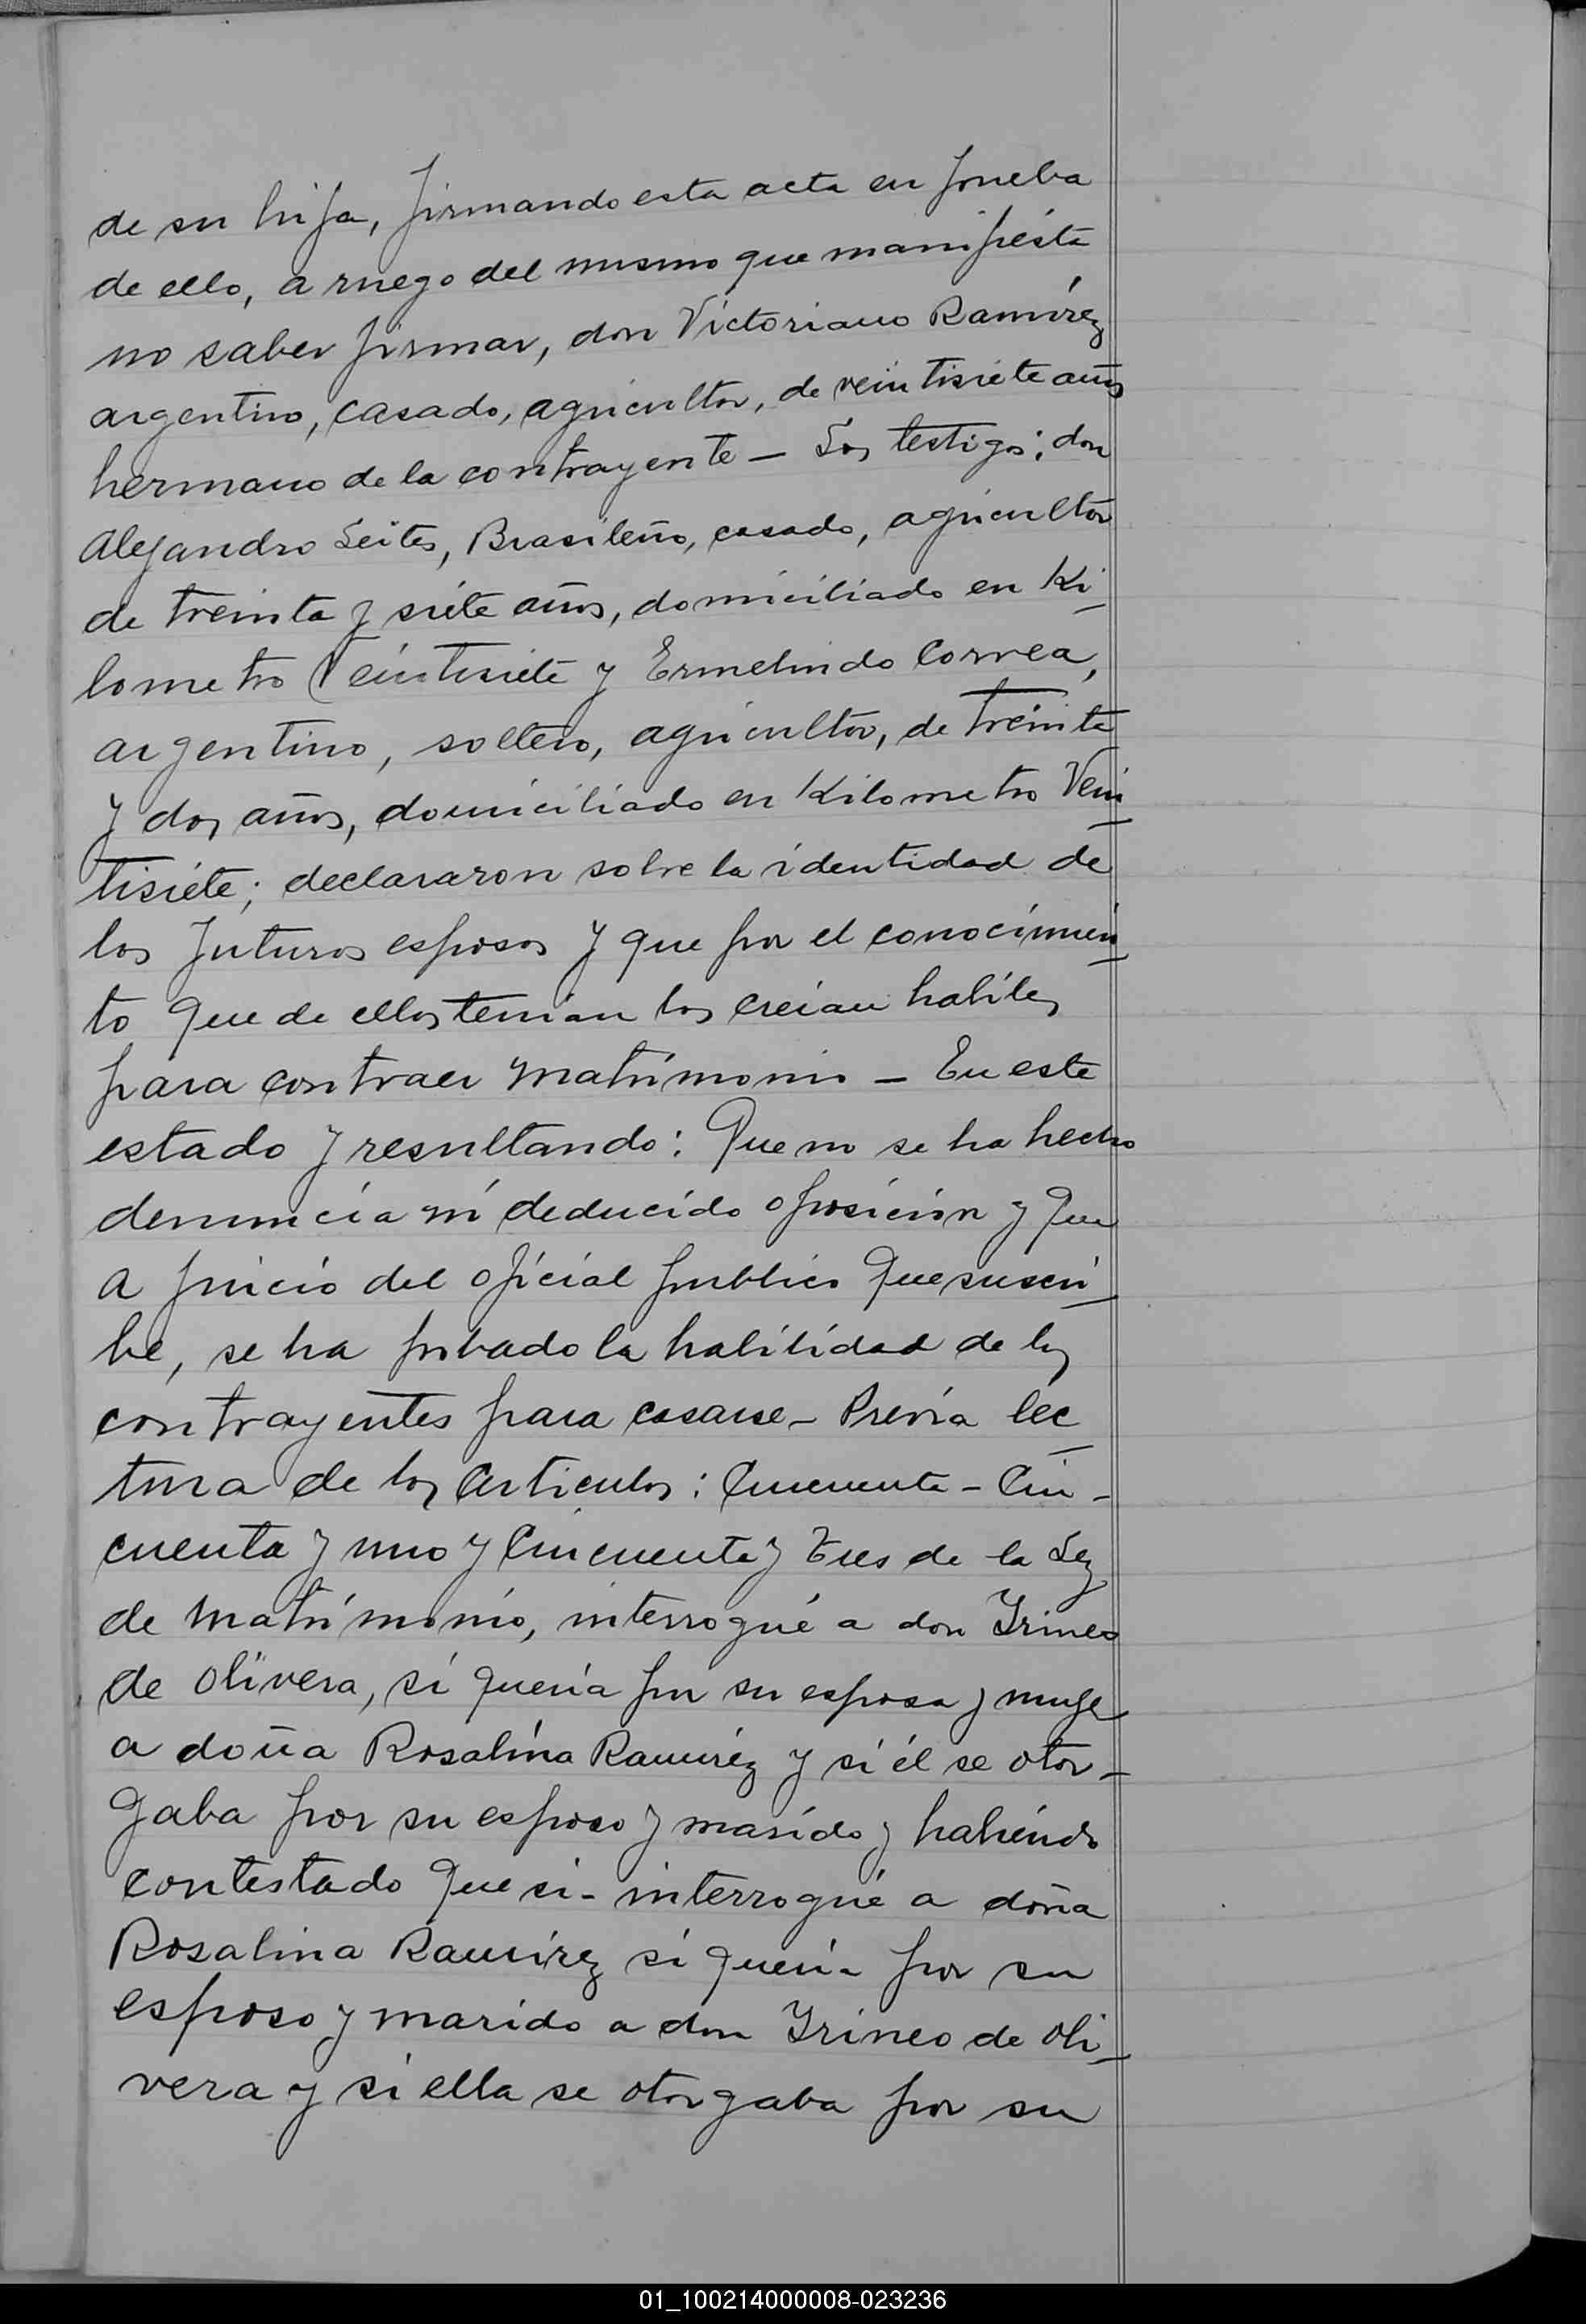 de su hija, firmando esta acta en prueba
de ello, a ruego del mismo que manifiesta
no saber firmar, don Victoriano Ramírez
argentino, casado, agricultor, de veintisiete años
hermano de la contrayente - Los testigos: don
Alejandro Leites, Brasileño, casado, agricultor
de treinta y siete años, domiciliado en Ki-
lometro Veintisiete y Ermelindo Correa,
argentino, soltero, agricultor, de treinta
y dos años, domiciliado en Kilometro Vein-
tisiete; declararon sobre la identidad de
los futuros esposos y que por el conocimien-
to que de ellos tenian los creian habiles
para contraer matrimonio - En este
estado y resultando: Que no se ha hecho
denuncia ni deducido oposición y que
a juicio del oficial publico que suscri-
be, se ha probado la habilidad de los
contrayentes para casarse - Previa lec-
tura de los articulos: Cincuenta - Cin-
cuenta y uno y Cincuenta y tres de la Ley
de Matrimonio, interrogué a don Irineo
de Olivera, si queria por su esposa y muger
a doña Rosalina Ramiréz y si él se otor-
gaba por su esposo y marido y habiendo
contestado que si - interrogué a doña
Rosalina Ramírez si queria por su
esposo y marido a don Irineo de Oli-
vera y si ella se otorgaba por su
01_100214000008-023236